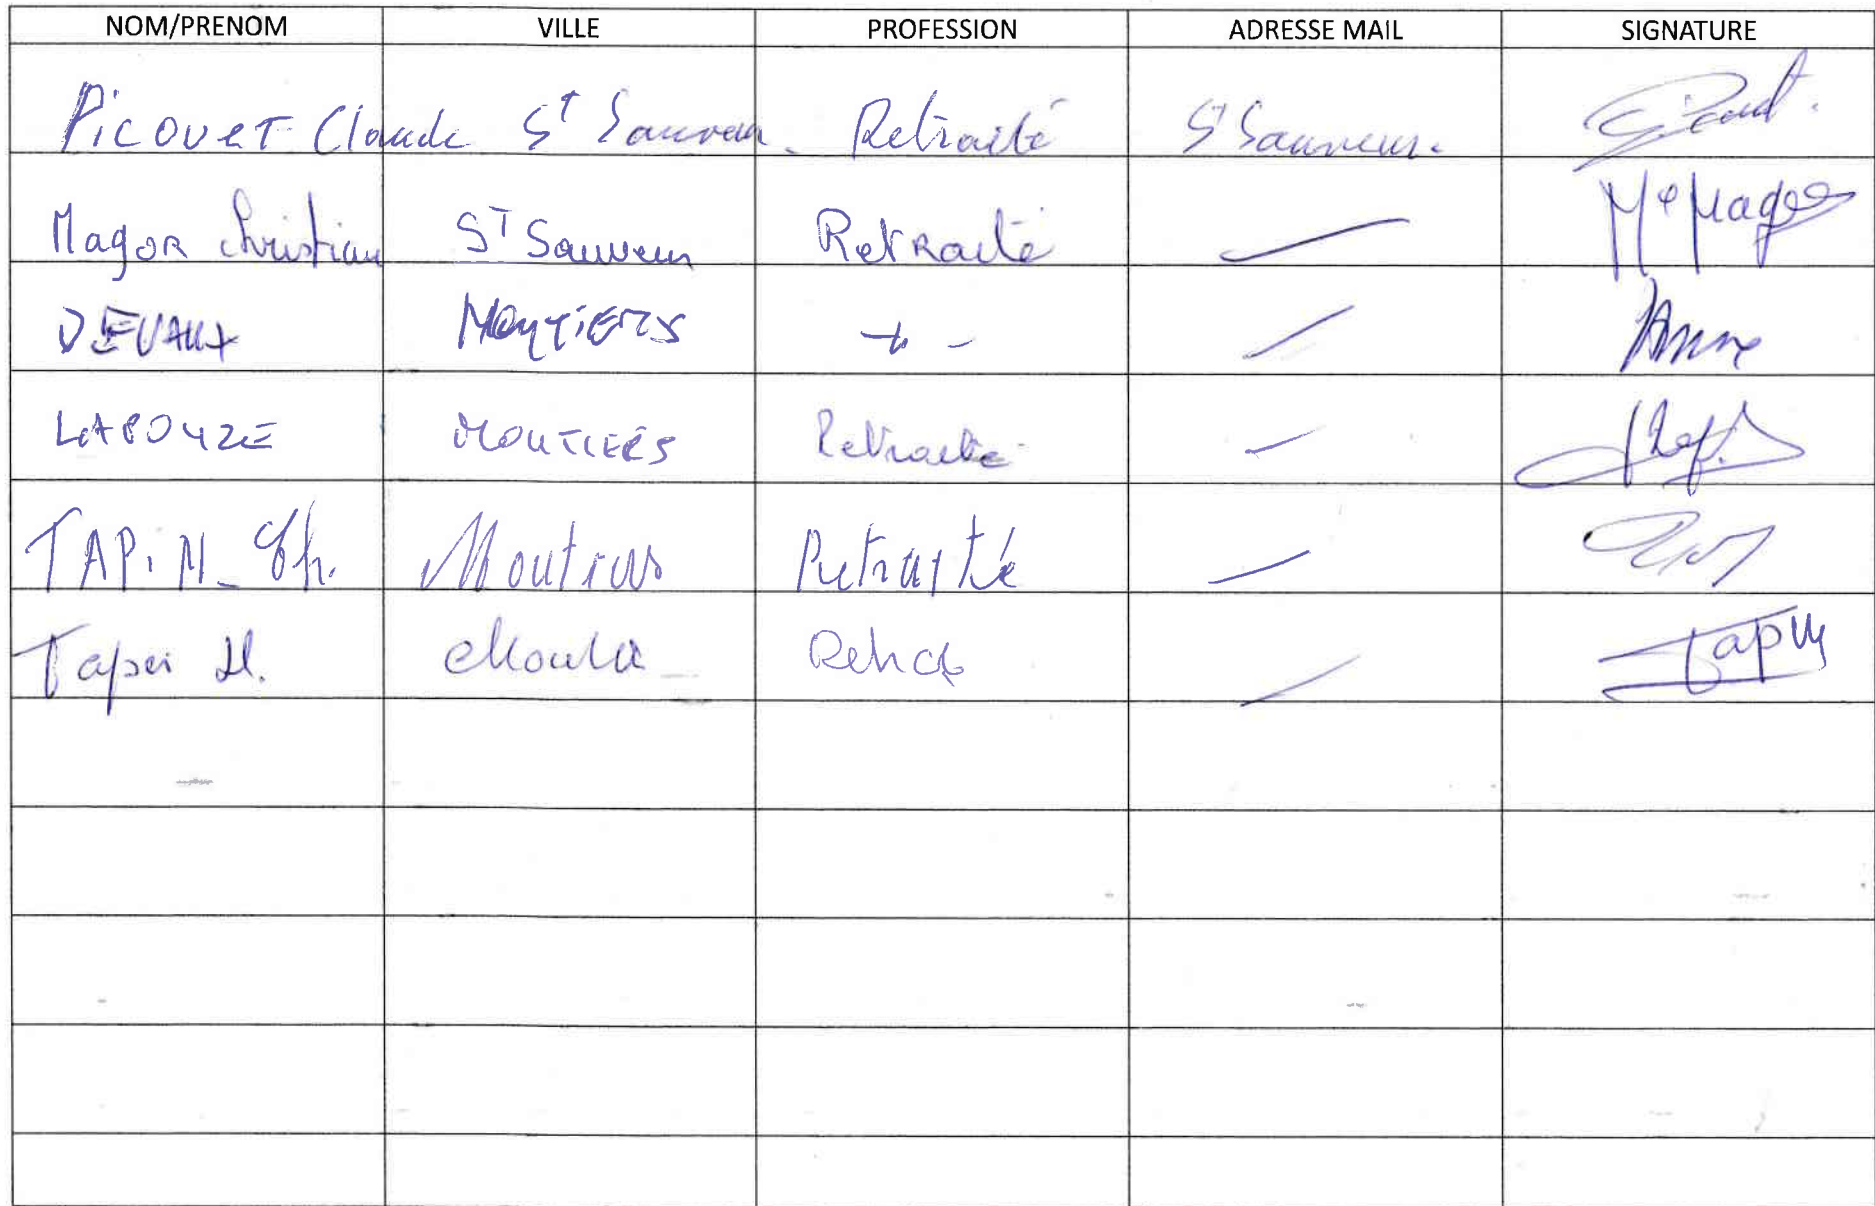 NOM/PRENOM VILLE PROFESSION ADRESSE MAIL SIGNATURE
PICOUET Claude St Sauveur. Retraité St Sauveur.
Magor Christian ST Sauveur Retraité
DEVAUX MOUTIERS + -
LAPOUZE MOUTIERS Retraité
TAPiN Retraité
Tapin